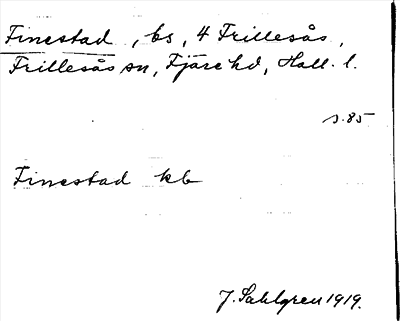 Finestad, bs, 4 Frillesås,
Frillesås sn, Fjäre hd, Hall. l.
s. 85
Finestad kb
J. Sahlgren 1919.